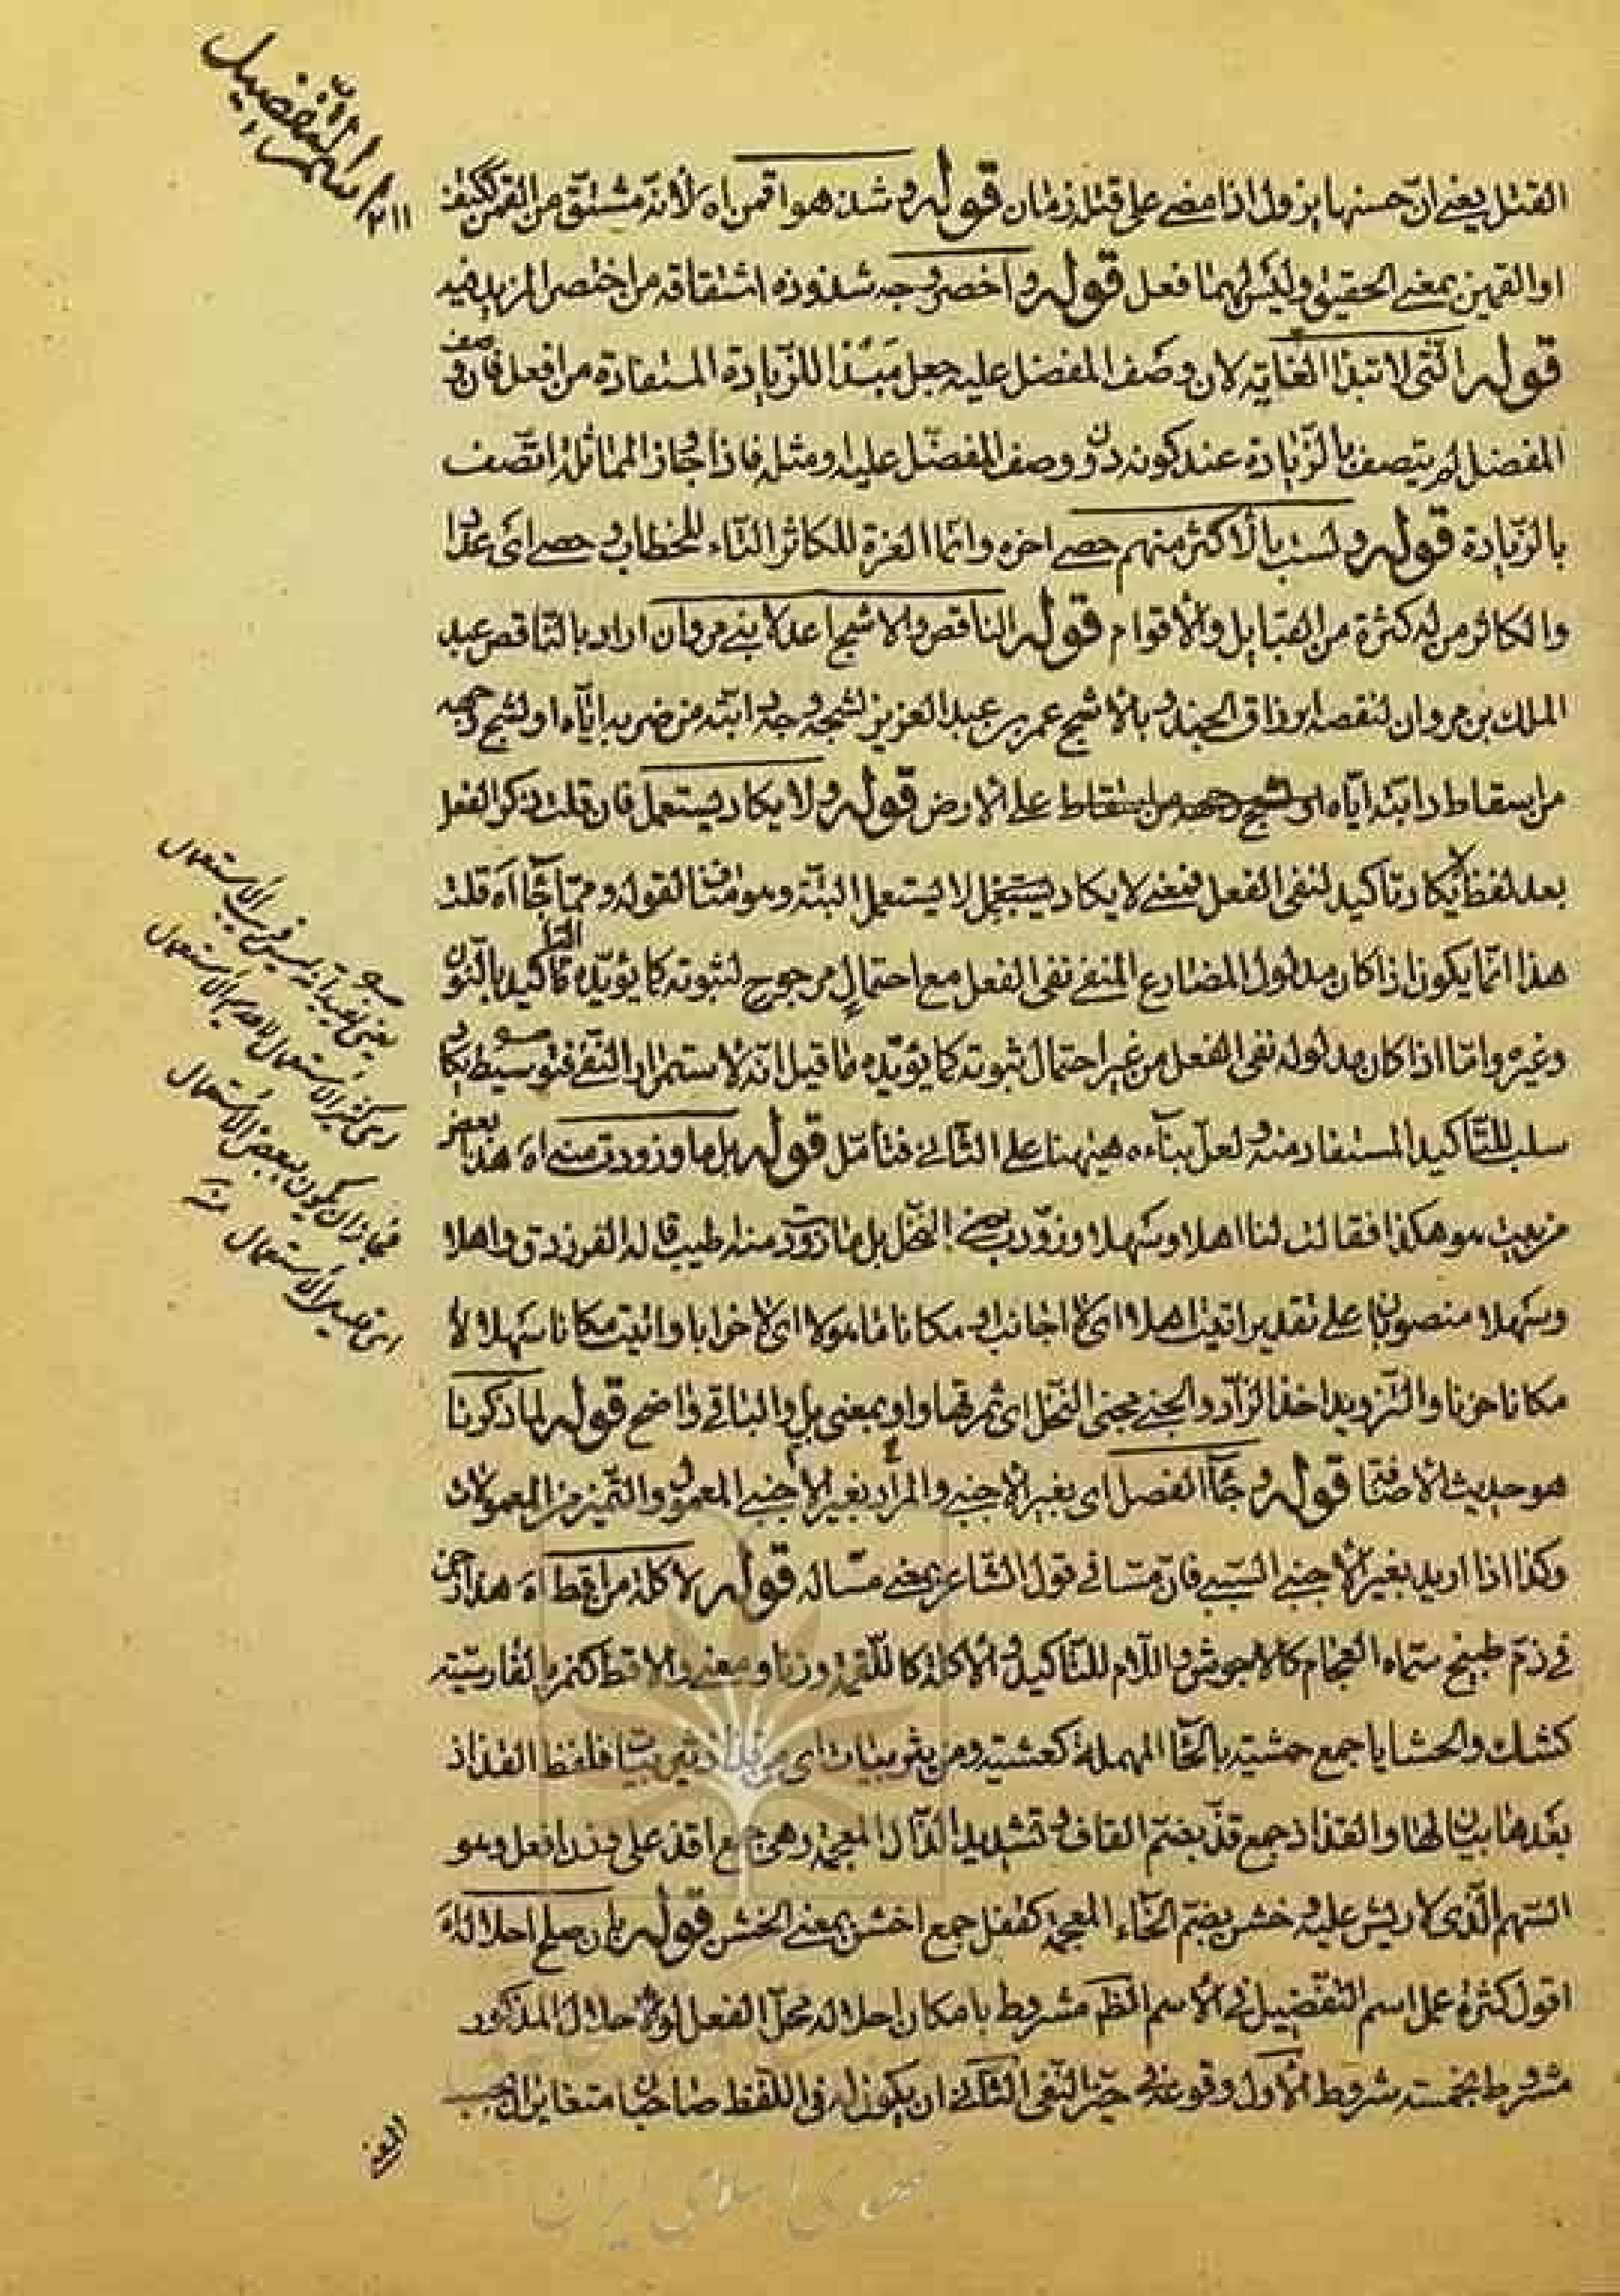 اسم التفضيل
٢١١
القتل يعني ان حسنها يزول اذا مضى على قتل زمان قوله وشذ هو اقمن اه لانه مشتق من القمن ككتف
او القمين بمعنى الحقيق وليس لهما فعل قوله واخصر وجه شذوذه اشتقاقه من اختصر المزيد فيه
قوله التى لابتداء الغاية لان وصف المفضل عليه جعل مبتدأ للزيادة المستفادة من افعل فان وصف
المفضل لم يتصف بالزيادة عند كونه دون وصف المفضل عليه ومثله فاذا جاز المماثلة اتصف
بالزيادة قوله ولست بالاكثر منهم حصى اخره وانما العزة للكاثر التاء للخطاب وحصى اى عددا
والكاثر من له كثرة من القبايل والاقوام قوله الناقص والاشج اعدلا بنى مروان اراد بالناقص عبد
الملك بن مروان لنقصه ارزاق الجند وبالاشج عمر بن عبد العزيز لشجه وجه ابنه من ضربه اياه او لشج وجهه
من اسقاط دابته اياه على الارض قوله ولا يكاد يستعمل فان قلت ذكر الفعل
بعد لفظ لا يكاد تأكيد لنفى الفعل فمعنى لا يكاد يستعمل لا يستعمل البتة وهو مناف لقوله ومما جاء اه قلت
هذا انما يكون اذا كان مدلول المضارع المنفى نفى الفعل مع احتمال مرجوح لثبوته كما يؤيده التأكيد بالنون
وغيره واما اذا كان مدلوله نفى الفعل من غير احتمال ثبوته كما يؤيده ما قيل انه لاستمرار النفى فتوسيط يكاد
سلب للتأكيد المستفاد منه ولعل بناءه هيهنا على الثانى فتأمل قوله بل ما وزودت منه اه هذا بعض
من بيت هو هكذا فقالت لنا اهلا وسهلا وزودت جنى النحل بل ما زودت منه اطيب قاله الفرزدق واهلا
وسهلا منصوبان على تقدير اتيت اهلا اى لا اجانب او مكانا ماهولا اى لا خرابا واتيت مكانا سهلا لا
مكانا حزنا والتزويد اخذ الزاد والجنى مجنى النحل اى ثمرتها واو بمعنى بل والباقى واضح قوله لما ذكرنا
هو حديث الاضافة قوله وجاء الفصل اى بغير الاجنبى والمراد بغير الاجنبى المعمول والتميز من المعمولات
وكذا اذا اريد بغير الاجنبى السببى فان مسا فى قول الشاعر بمعنى مساله قوله لاكلة من اقط اه هذا رجز
فى ذم طبيخ سماه اللام للتأكيد والاكلة كاللقمة وزنا ومعنى والاقط ككتف بالفارسية
كشك والحشايا جمع حشية بالحاء المهملة كعشية ومن يثربيات اى من قذاذ يثربيات فلفظ القذاذ
بعدها بيان لها والقذاذ جمع قذ بضم القاف وتشديد الذال المعجمة وهى جمع اقذ على وزن افعل وهو
السهم الذى لا ريش عليه وخشن بضم الخاء المعجمة كقفل جمع اخشن بمعنى الخشن قوله بان صلح احلال اه
اقول كثرة عمل اسم التفضيل فى الاسم الظم مشروط بامكان احلاله محل الفعل او لاحلال المذكور
مشروط بخمسة شروط الاول وقوعه فى حيز النفى الثانى ان يكون له فى اللفظ صاحبا متغايرا بحسب
المعنى
يعنى يفيد انه ليس قريب الاستعمال
كثير الاستعمال لا عديم الاستعمال
فجاز ان يكون بعض الاستعمال
اى قليل الاستعمال منه